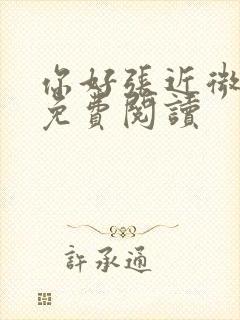 你好張近微
免費閱讀
許承通